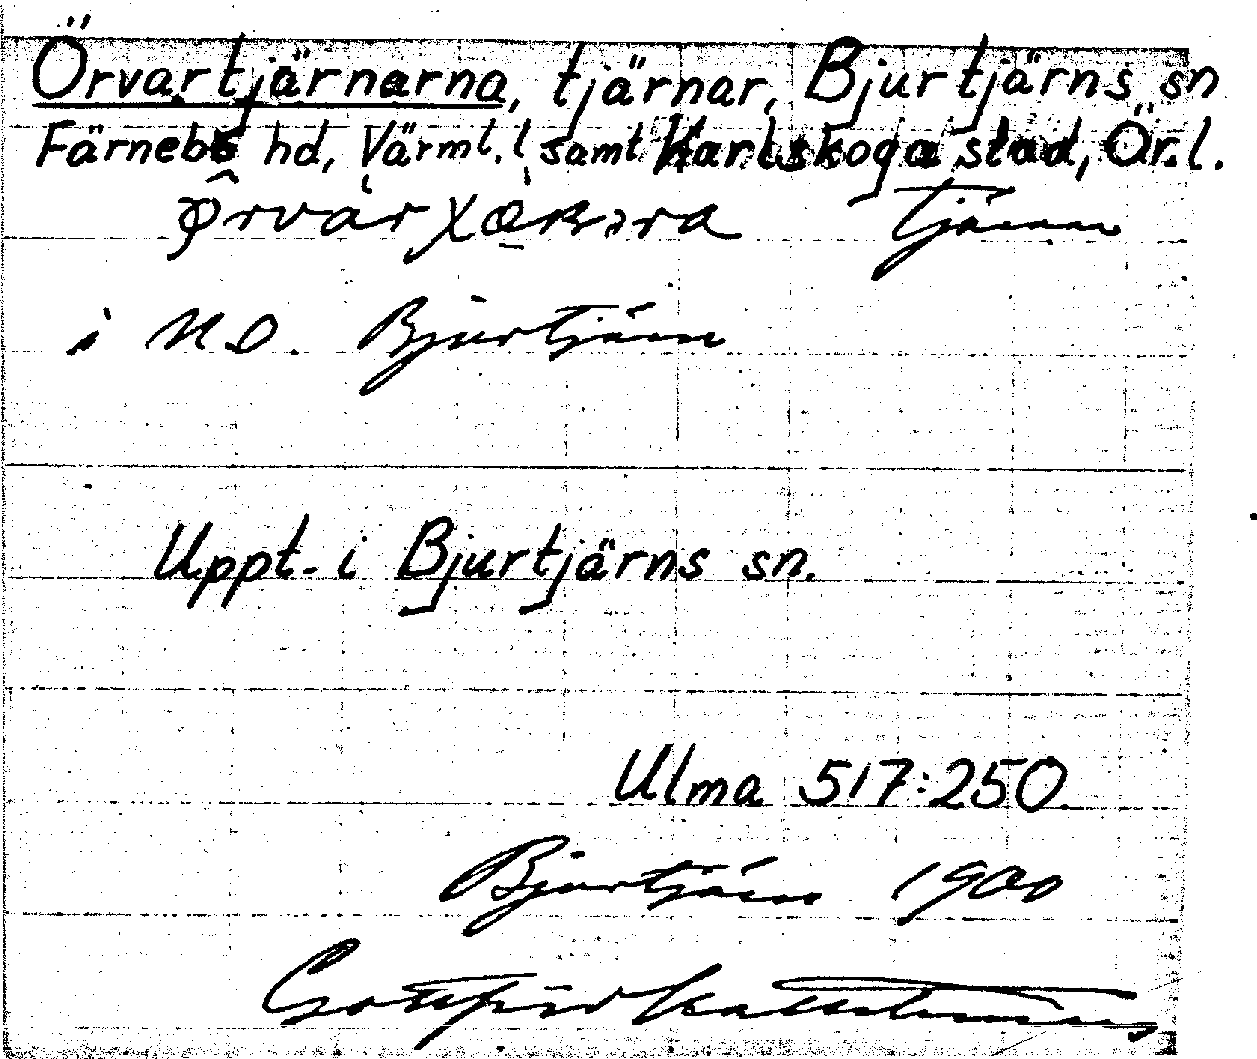 Örvartjärnarna, tjärnar, Bjurtjärns sn
Färnebo hd, Värml. l samt Karlskoga stad, Ör. l.
tjärn
i N.O. Bjurtjärn
Uppt. i Bjurtjärns sn.
Ulma 517:250
Bjurtjärn 1900
Gottfrid Kallstenius